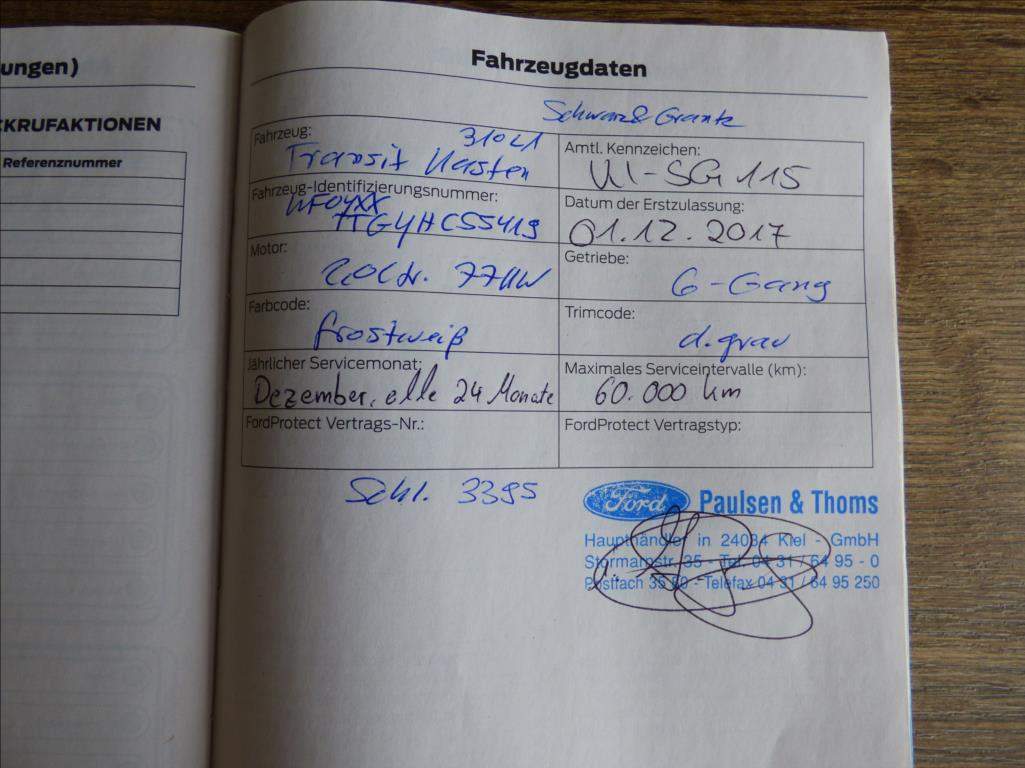 ungen)
KRUFAKTIONEN
Referenznummer
Fahrzeugdaten
Schwarz & Grantz
Fahrzeug:
310 L1
Transit Kasten
Amtl. Kennzeichen:
SG 115
Fahrzeug-Identifizierungsnummer:
WF0YXX
TTGYHC55419
Datum der Erstzulassung:
01.12.2017
Motor:
77KW
Getriebe:
6-Gang
Farbcode:
frostweiß
Trimcode:
d.grau
Jährlicher Servicemonat:
Dezember, alle 24 Monate
Maximales Serviceintervalle (km):
60.000 km
FordProtect Vertrags-Nr.:
FordProtect Vertragstyp:
Schl. 3395
Ford Paulsen & Thoms
Haupthändler in 24034 Kiel - GmbH
Stormarnstr. 35 - Tel. 04 31 / 64 95 - 0
Postfach 35 - Telefax 04 31 / 64 95 250